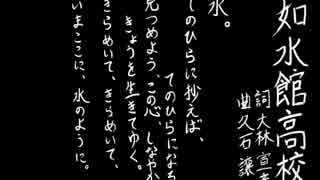 如水館高校
詞 大林宣
曲 久石譲
水。
てのひらに抄えば、
てのひらにな
見つめよう、この心 しなやか
きょうを生きてゆく。
きらめいて、きらめいて、
いまここに、水のように。